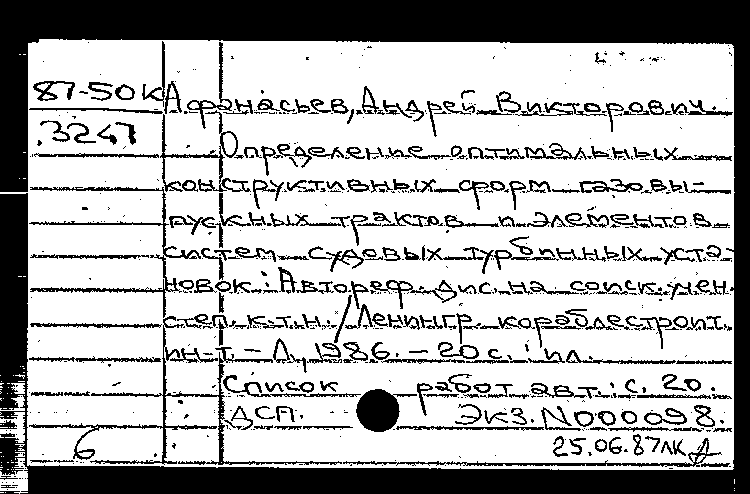 87-50К Афанасьев, Андрей Викторович.
3247
Определение оптимальных
конструктивных форм газовы-
пускных трактов и элементов
систем судовых турбинных уста-
новок : Автореф. дис. на соиск. учен.
степ. к.т.н. / Ленингр. кораблестроит.
ин-т. - Л., 1986. - 20 с. : ил.
Список работ авт.: с. 20.
ДСП. Экз. N000098.
6 25.06.87лк